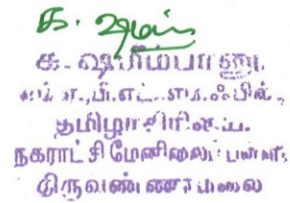 க. ஷமீம்பானு
எம்.ஏ.,பி.எட்.,எம்.ஃபில்.,
தமிழாசிரியை.
நகராட்சி மேனிலைப் பள்ளி
திருவண்ணாமலை